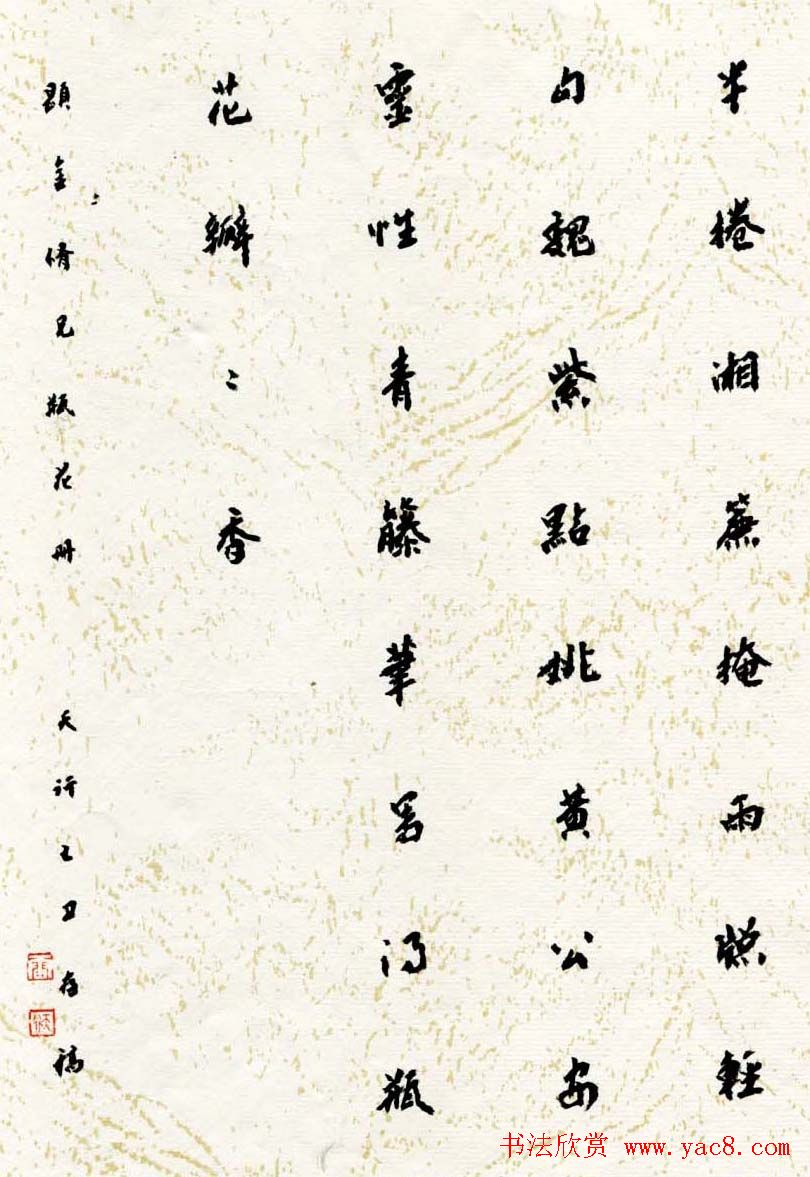 半捲湘簾掩雨牕輕
勾魏紫點姚黃公安
靈性青藤筆寫得瓶
花瓣〻香
題金〻脩兄瓶花冊 天行乙丑存稿
书法欣赏 www.yac8.com